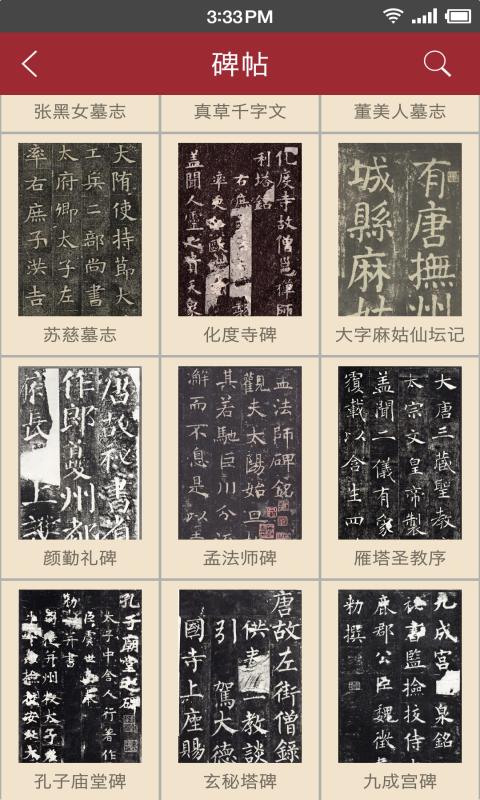 3:33PM
碑帖
张黑女墓志
真草千字文
董美人墓志
大隋使持節大
工兵二部尚書
太府卿太子左
率右庶子洪吉
苏慈墓志
化度寺故僧邕禅師
利塔銘
右庶
率更
蓋聞人靈之貴天象
化度寺碑
有唐撫州
城縣麻姑
大字麻姑仙坛记
唐故秘書省
作郎夔州都
長上護
颜勤礼碑
孟法師碑銘
觀夫太陽始旦
其若馳巨川分
辯而不息是以
孟法师碑
大唐三藏聖教
太宗文皇帝製
蓋聞二儀有象
覆載以含生四
雁塔圣教序
孔子廟堂之碑
太子中舍人行著作
臣虞世
勑并書
孔子庙堂碑
唐故左街僧録
供奉三教談
引駕大德
國寺上座賜
玄秘塔碑
九成宫
泉銘
秘書監撿挍侍
鹿郡公臣魏徵
勑撰
九成宫碑